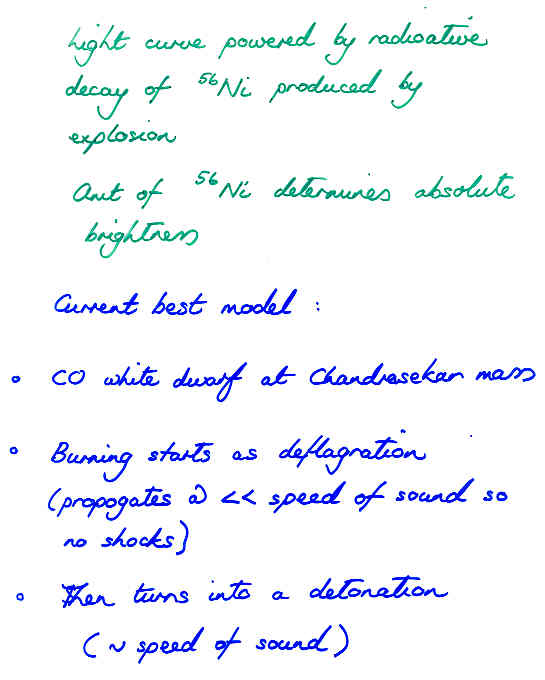 Light curve powered by radioative
decay of ⁵⁶Ni produced by
explosion
Amt of ⁵⁶Ni determines absolute
brightness
Current best model :
• CO white dwarf at Chandrasekar mass
• Burning starts as deflagration
(propogates @ << speed of sound so
no shocks)
• Then turns into a detonation
(~ speed of sound)